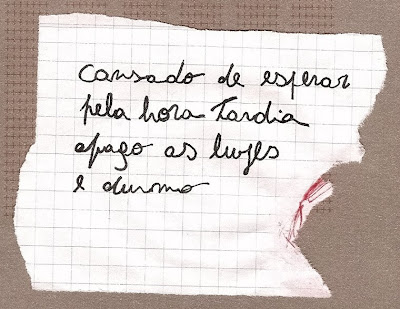 cansado de esperar
pela hora tardia
apago as luzes
e durmo